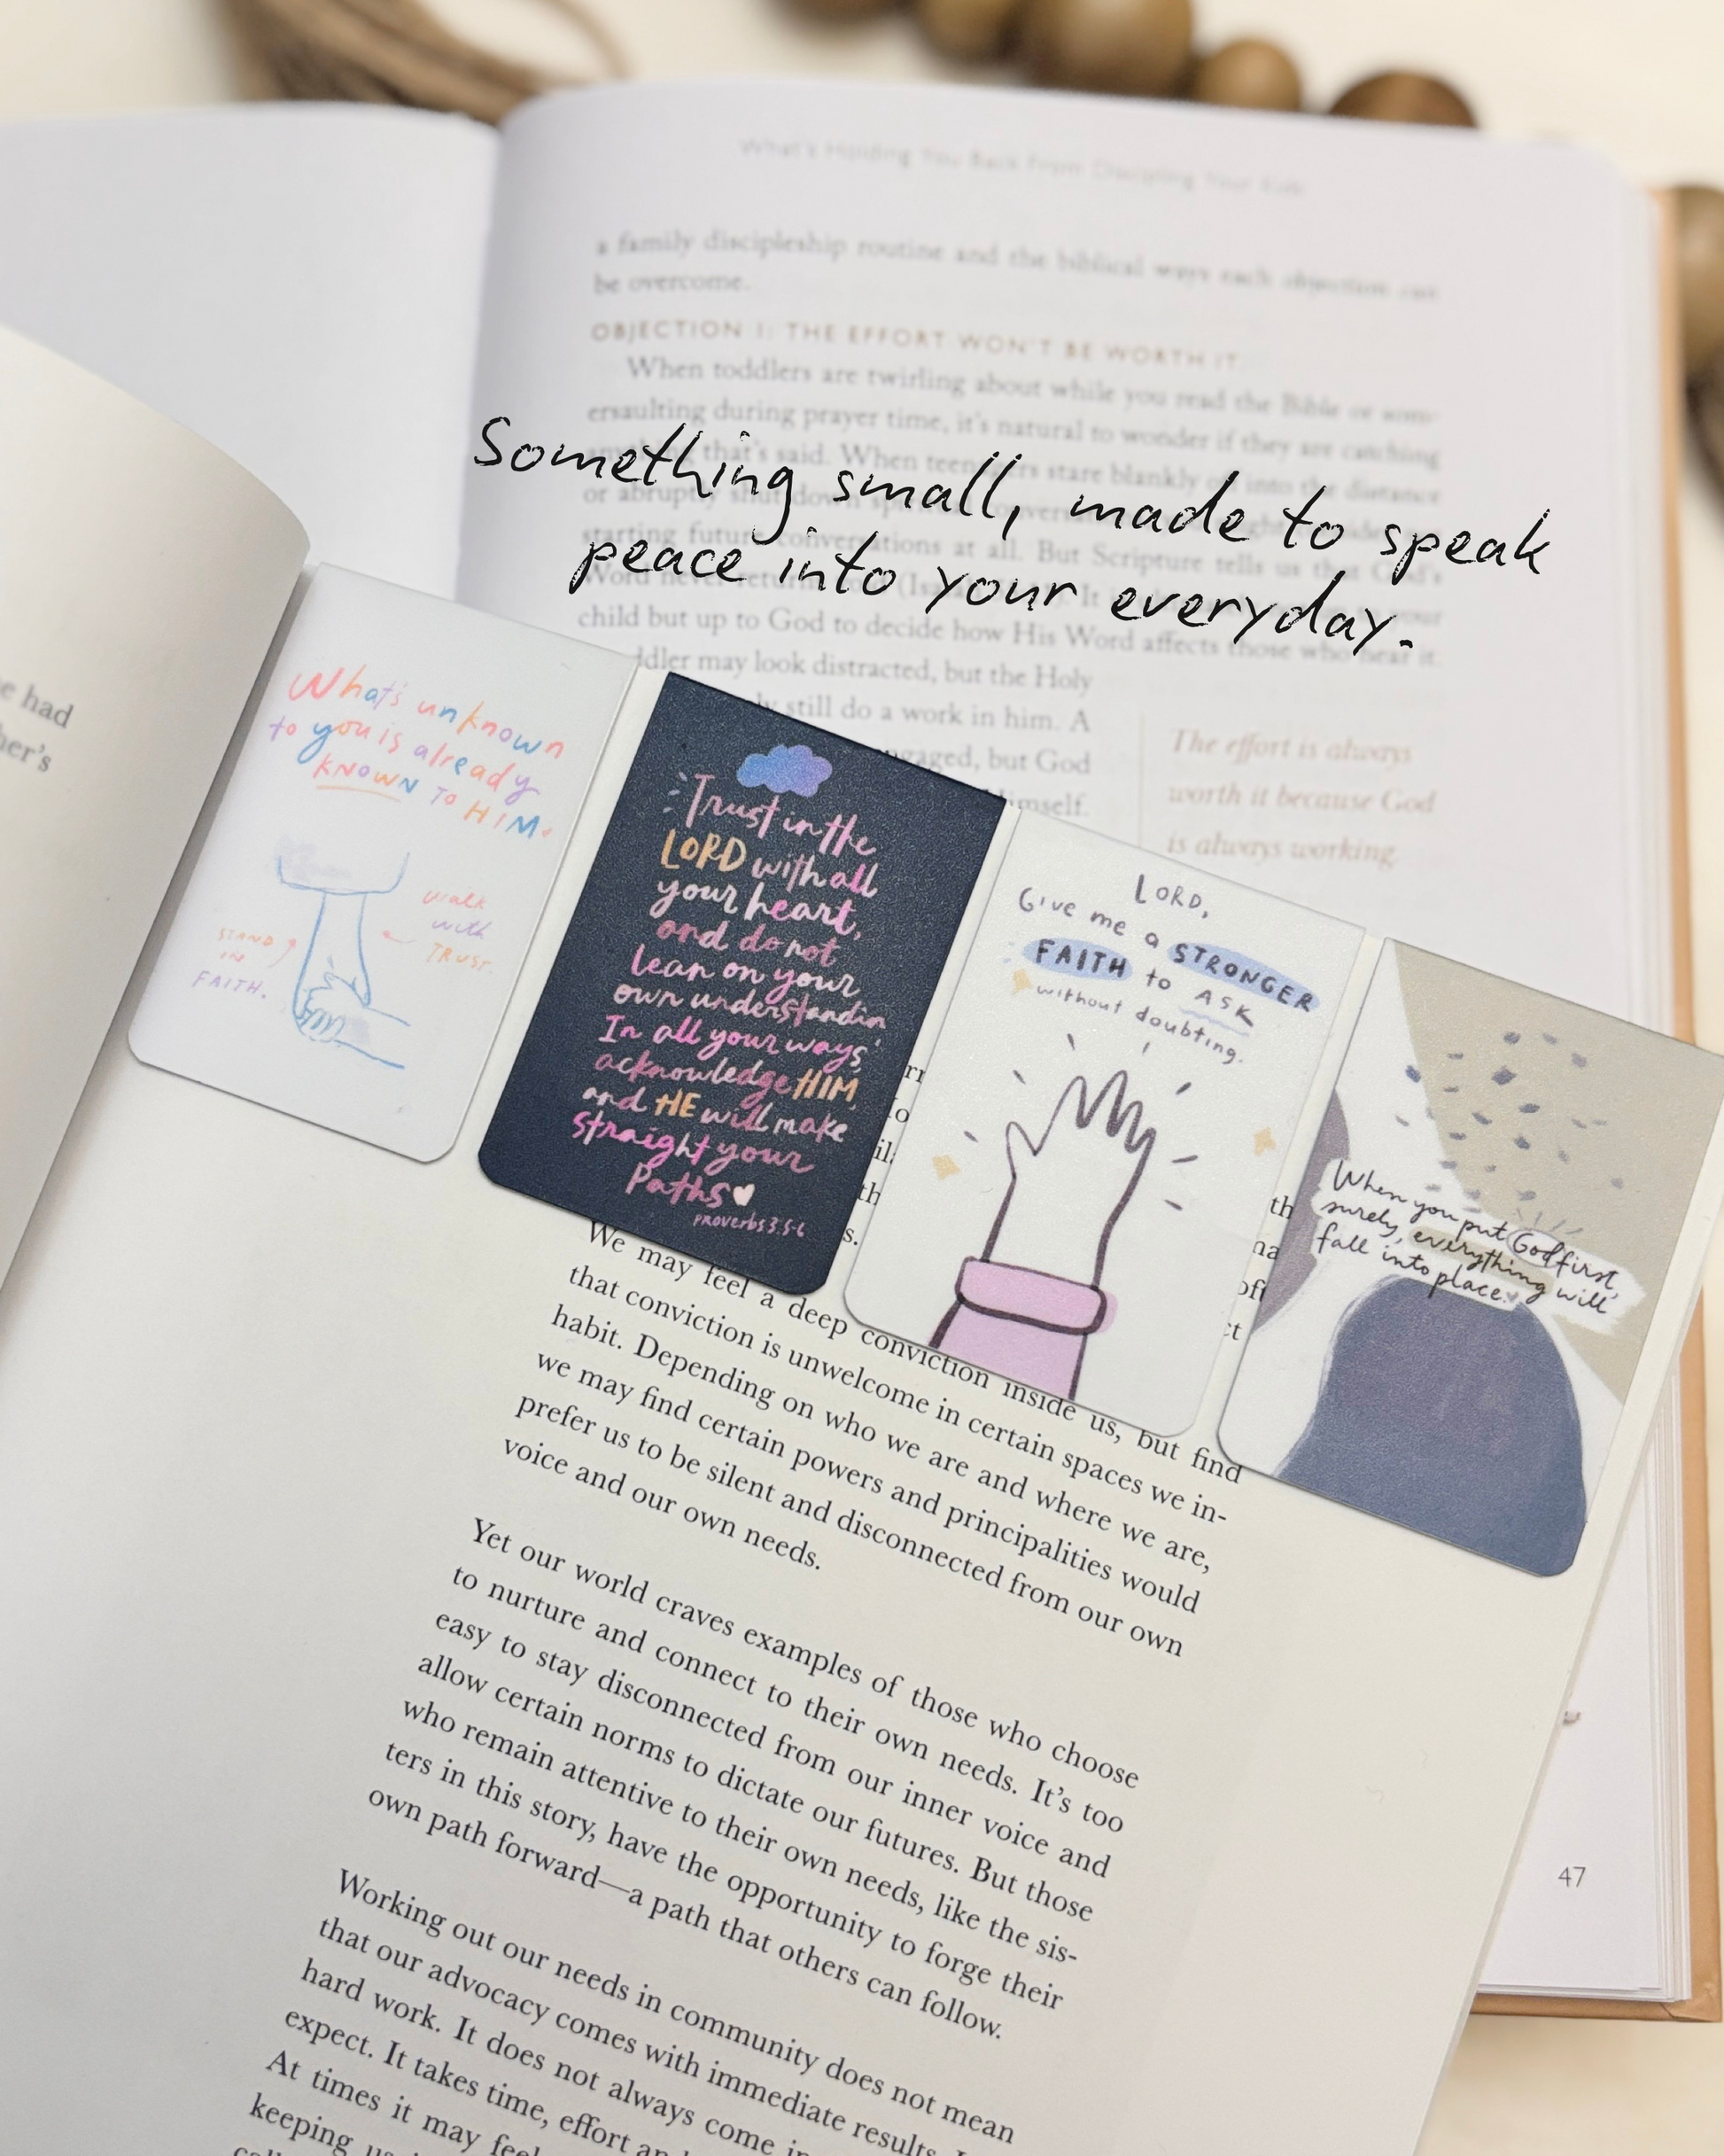 What's Holding You Back From Discipling Your Kids
a family discipleship routine and the biblical ways each objection can
be overcome.
OBJECTION 1: THE EFFORT WON'T BE WORTH IT
When toddlers are twirling about while you read the Bible or som-
ersaulting during prayer time, it's natural to wonder if they are catching
that's said. When teenagers stare blankly off into the distance
or abruptly shut down
starting future conversations at all. But Scripture tells us that God's
Word never
child but up to God to decide how His Word affects those who hear it.
ddler may look distracted, but the Holy
still do a work in him. A
ngaged, but God
imself.
The effort is always
worth it because God
is always working.
Something small, made to speak
peace into your everyday.
e had
her's
What's unknown
to you is already
KNOWN TO HIM
STAND
IN
FAITH.
walk
with
TRUST.
Trust in the
LORD with all
your heart,
and do not
lean on your
own understandin
In all your ways
acknowledge HIM,
and HE will make
straight your
Paths
proverbs 3:5-6
LORD,
Give me a STRONGER
FAITH to ASK
without doubting.
When you put God first,
surely, everything will
fall into place.
We may feel a deep conviction inside us, but find
that conviction is unwelcome in certain spaces we in-
habit. Depending on who we are and where we are,
we may find certain powers and principalities would
prefer us to be silent and disconnected from our own
voice and our own needs.
Yet our world craves examples of those who choose
to nurture and connect to their own needs. It's too
easy to stay disconnected from our inner voice and
allow certain norms to dictate our futures. But those
who remain attentive to their own needs, like the sis-
ters in this story, have the opportunity to forge their
own path forward—a path that others can follow.
Working out our needs in community does not mean
that our advocacy comes with immediate results.
hard work. It does not always come in
expect. It takes time, effort an
At times it may feel
keeping us
47